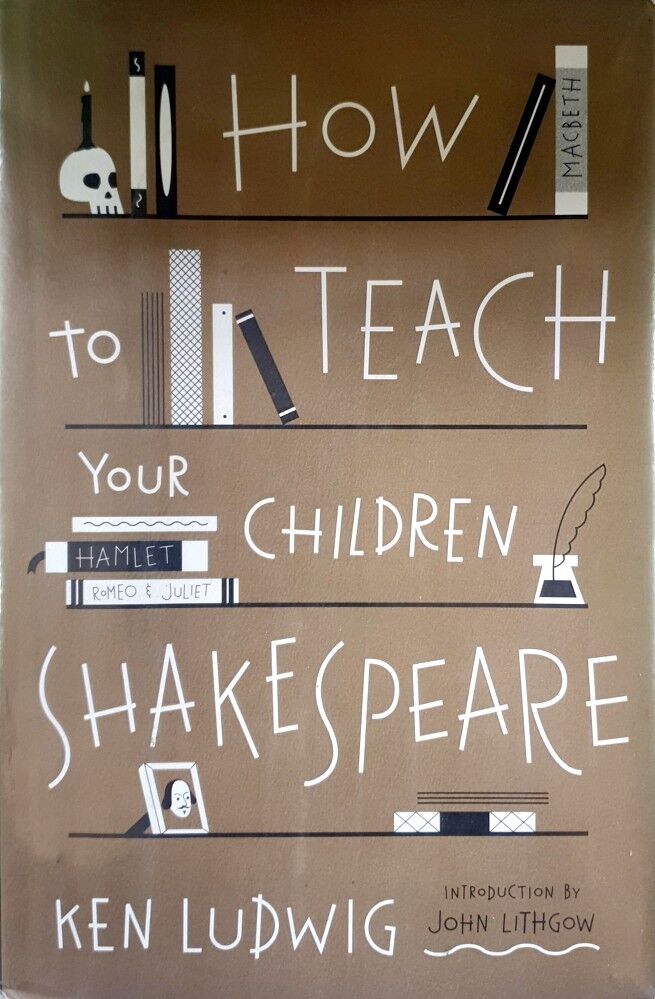 HOW
MACBETH
TO TEACH
YOUR
CHILDREN
HAMLET
ROMEO & JULIET
SHAKESPEARE
KEN LUDWIG
INTRODUCTION BY
JOHN LITHGOW